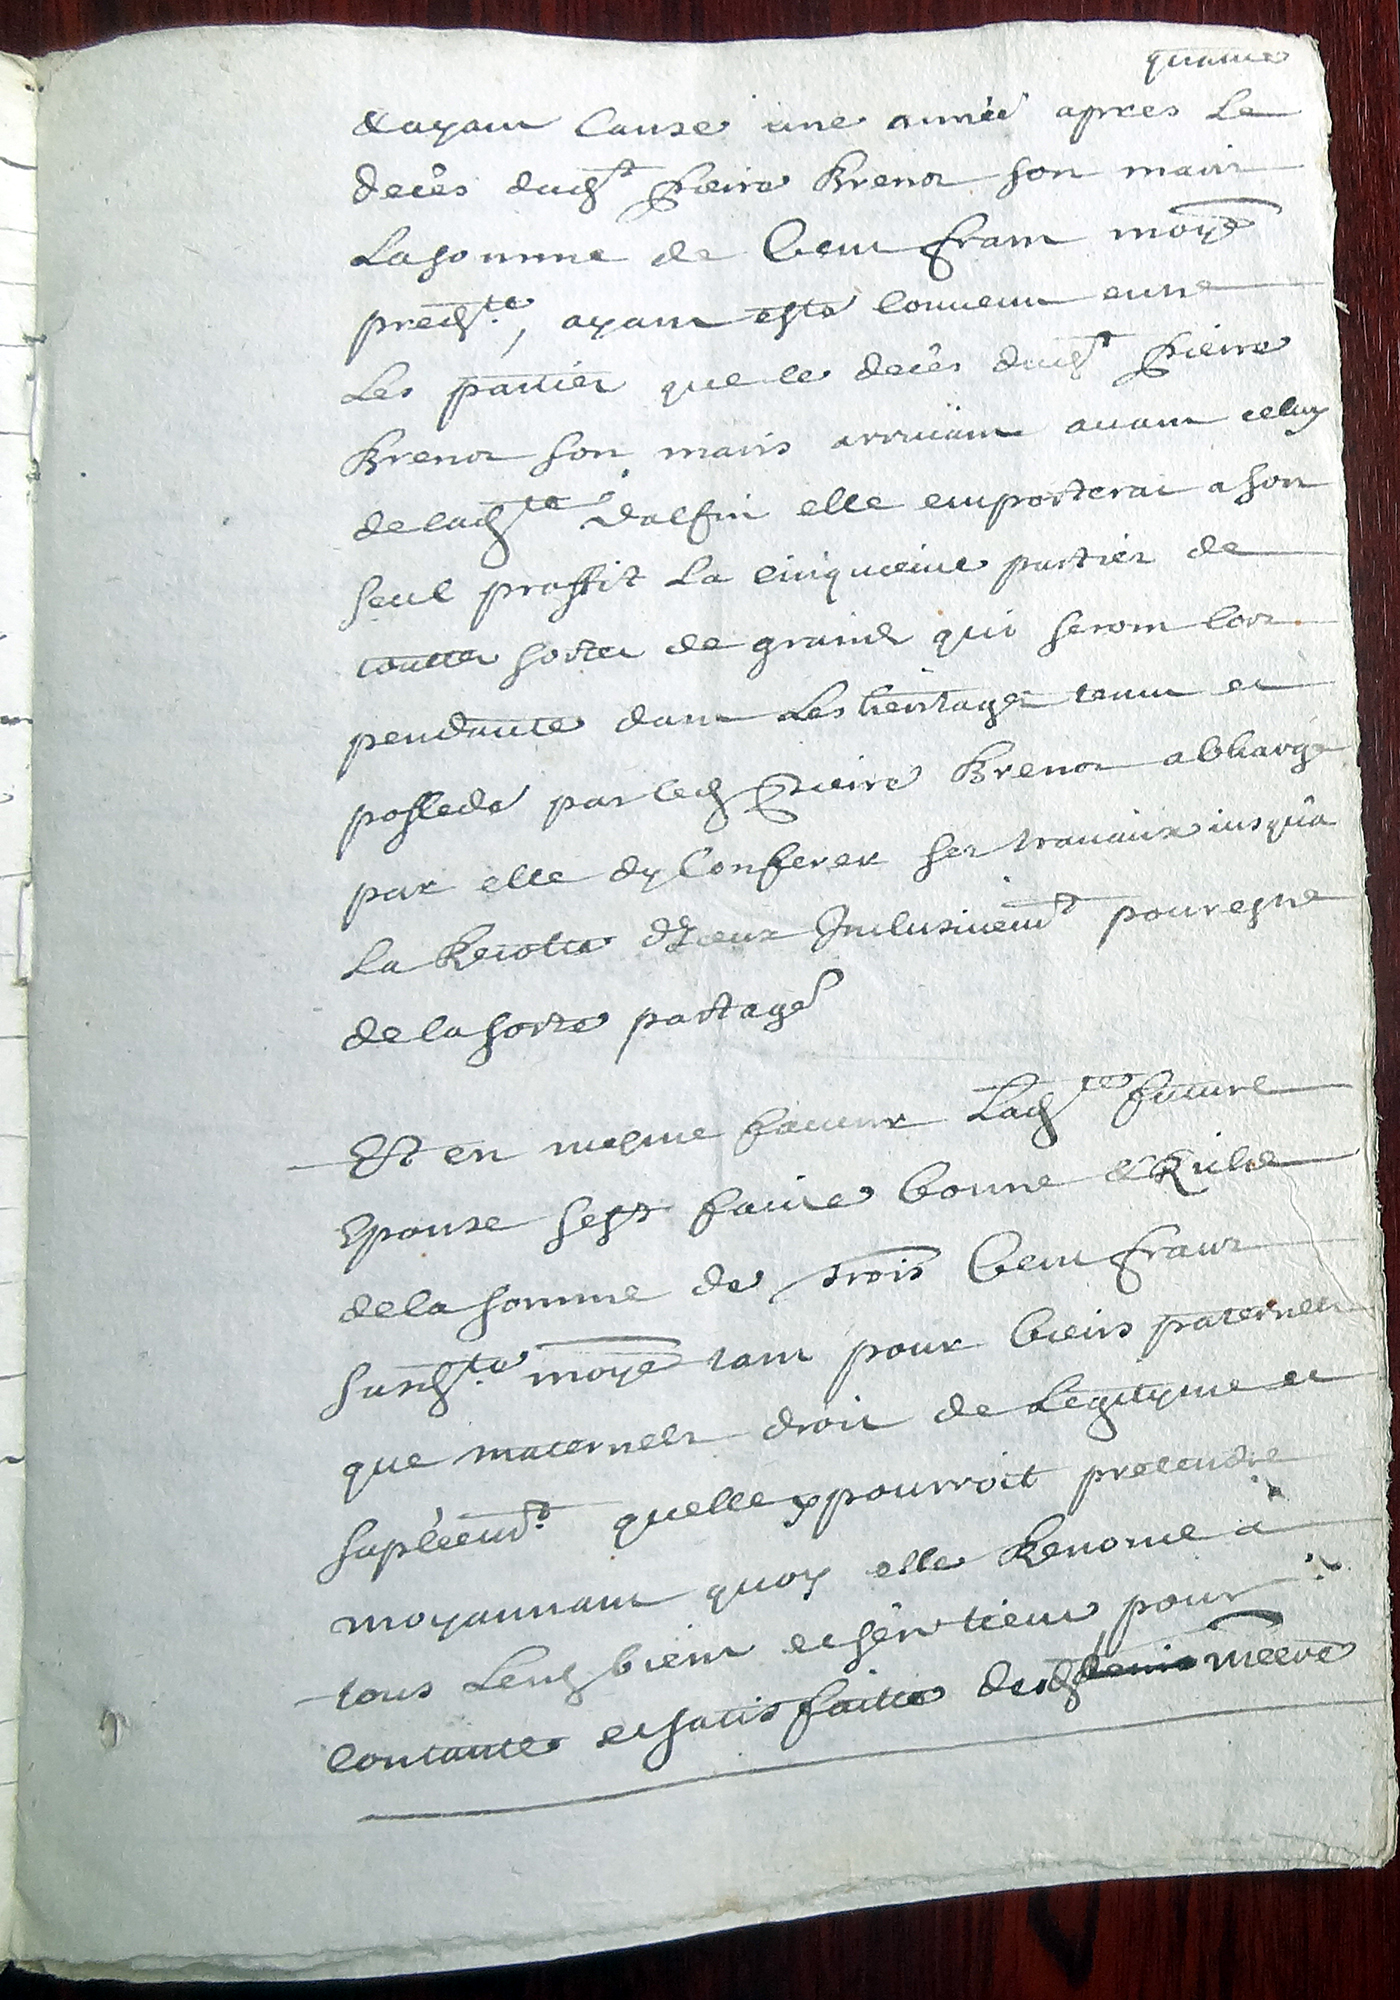 quatre
& ayam cause une année apres Le
decès dud.t Pieire Krenor son marit
La somme de Cent fram moy.e
pred.te, ayam esté convenu entre
Les parties que le decès dud.t Pieire
Krenor son maris arrivam avam celuy
de lad.te Dalfin elle emporterai a son
seul proffit La cinquieme parties de
toutte sortes de graines qui serom lors
pendante dans Les heritages tenu et
possede par led Pieire Krenor a Charge
par elle dy Conferer ses travaux iusqua
La Recolte Inclusivem.t pour estre
de la sorte partagé
Et en mesme faveur Lad.te future
Epouse sest faitte bonne & Riche
de la somme de trois Cent frans
susd.te moy.e tam pour biens paternels
que maternels droit de Legityme et
suplëem.t quelle y pourroit pretendre
moyannam quoy elle Renonce a
tous Leurs biens et sen tiens pour
contante et satisfaitte desd meere